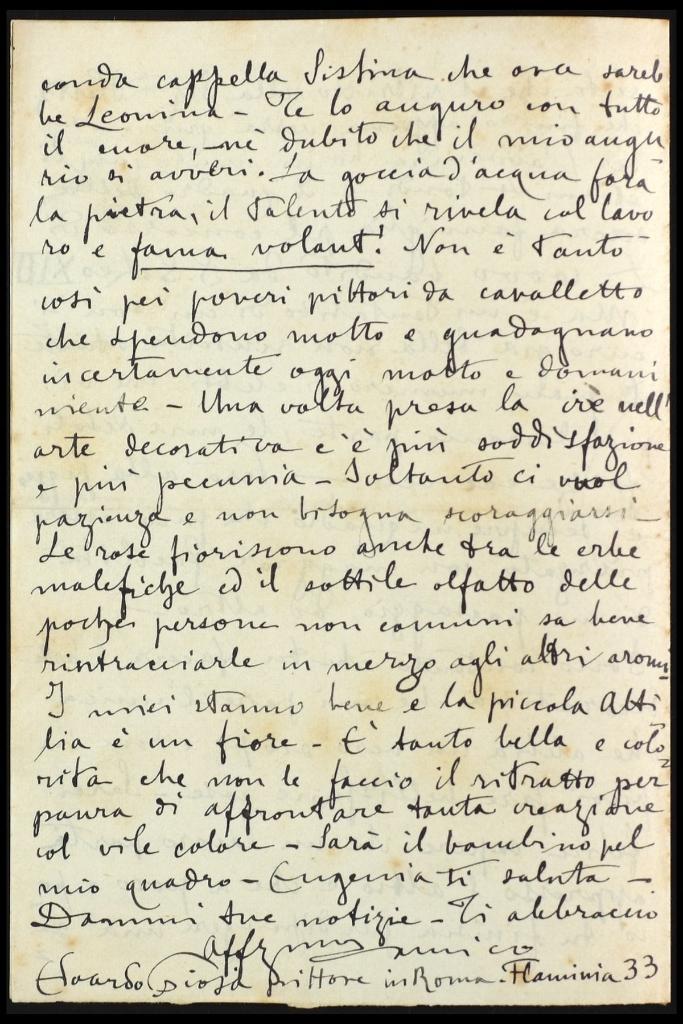 conda cappella Sistina che ora sareb
be Leonina - Te lo auguro con tutto
il cuore, - nè dubito che il mio augu
rio si avveri. La goccia d'acqua forà
la pietra, il talento si rivela col lavo
ro e fama volant! Non è tanto
così pei poveri pittori da cavalletto
che spendono molto e guadagnano
incertamente oggi molto e domani
niente - Una volta presa la vie nell'
arte decorativa c'è più soddisfazione
e più pecunia - Soltanto ci vuol
pazienza e non bisogna scoraggiarsi -
Le rose fioriscono anche tra le erbe
malefiche ed il sottile olfatto delle
poche persone non comuni sa bene
rintracciarle in mezzo agli altri aromi
I miei stanno bene e la piccola Atti
lia è un fiore - È tanto bella e colo
rita che non le faccio il ritratto per
paura di affrontare tanta creazione
col vile colore - Sarà il bambino pel
mio quadro - Eugenia ti saluta -
Dammi tue notizie - Ti abbraccio
affzmo amico
Edoardo Gioja Pittore in Roma. Flaminia 33